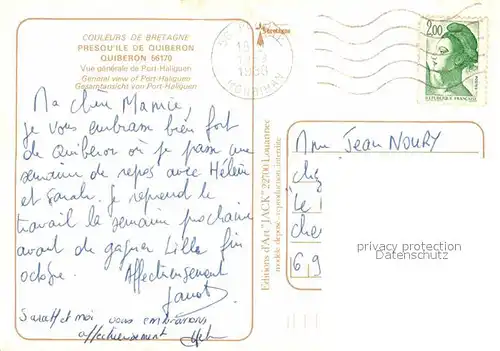 COULEURS DE BRETAGNE
PRESQU'ILE DE QUIBERON
QUIBERON 56170
Vue générale de Port-Haliguen
General view of Port-Haliguen
Gesamtansicht von Port-Haliguen
Ma chère Mamie,
je vous embrasse bien fort
de Quiberon où je passe une
semaine de repos avec Hélène
et Sarah. Je reprend le
travail la semaine prochaine
avant de gagner Lille fin
octobre.
Affectueusement
Sarah et moi vous embrassons
affectueusement
Editions d'Art "JACK" 22700 Louannec
modèle déposé - reproduction interdite
MORBIHAN
2,00
REPUBLIQUE FRANÇAISE
Mme Jean NOURY
"Le
6,9
privacy protection
Datenschutz